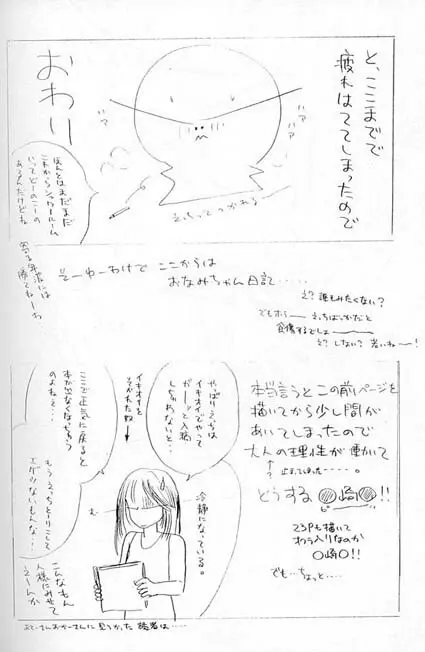 と、ここまでで
疲れはててしまったので
おわり
ハア
ハア
ハア
えっちってつかれる
ほんとはまだまだ
これからシャワールーム
いってどーのこーの
あるんだけどね
寄る年波には
勝てねーわ
そーゆーわけで ここからは
おなみちゃん日記‥‥‥
え?誰もみたくない?
でもホラー えっちばっかだと
食傷するでしょー
え?しない?若いねー!
本当言うとこの前ページを
描いてから少し間が
あいてしまったので
大人の理性が働いて
↑
?
止まってしまった‥‥‥。
どうする 崎 !!
ピー
23Pも描いて
おわりなのか
〇崎〇!!
でも…ちょっと……
やっぱりえっちは
イキオイでやって
ガーッと入稿
しなわないと…
イキオイを
そがれた奴→
ここで正気に戻ると
本が出なくなっちゃう
のよねぇ…
冷静になっている。
む
もうえっちとりこして
エゲツないもんな…
こんなもん
人様にみせて
えーんか
おとーさんおかーさんに見つかった読者は……